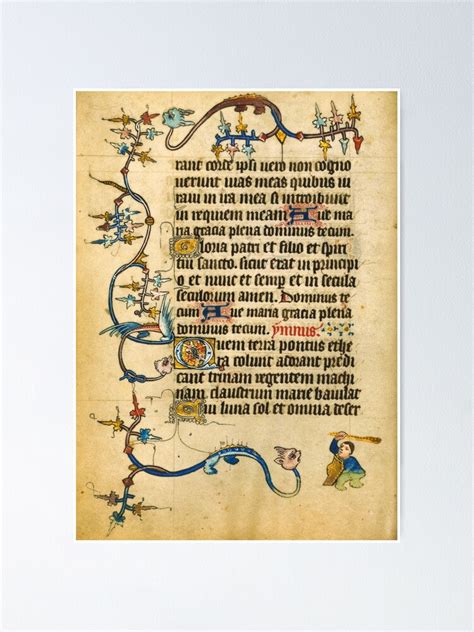 rant corde ipsi uero non cogno
uerunt uias meas quibus iu
raui in ira mea si introibunt
in requiem meam Aue ma
ria gracia plena dominus tecum.
Gloria patri et filio et spiri
tui sancto. sicut erat in principi
o et nunc et semp et in secula
seculorum amen. Dominus te
cum Aue maria gracia plena
dominus tecum. ymnus.
Quem terra pontus ethe
ra colunt adorant predi
cant trinam regentem machi
nam claustrum marie baiulat
Cui luna sol et omnia deser